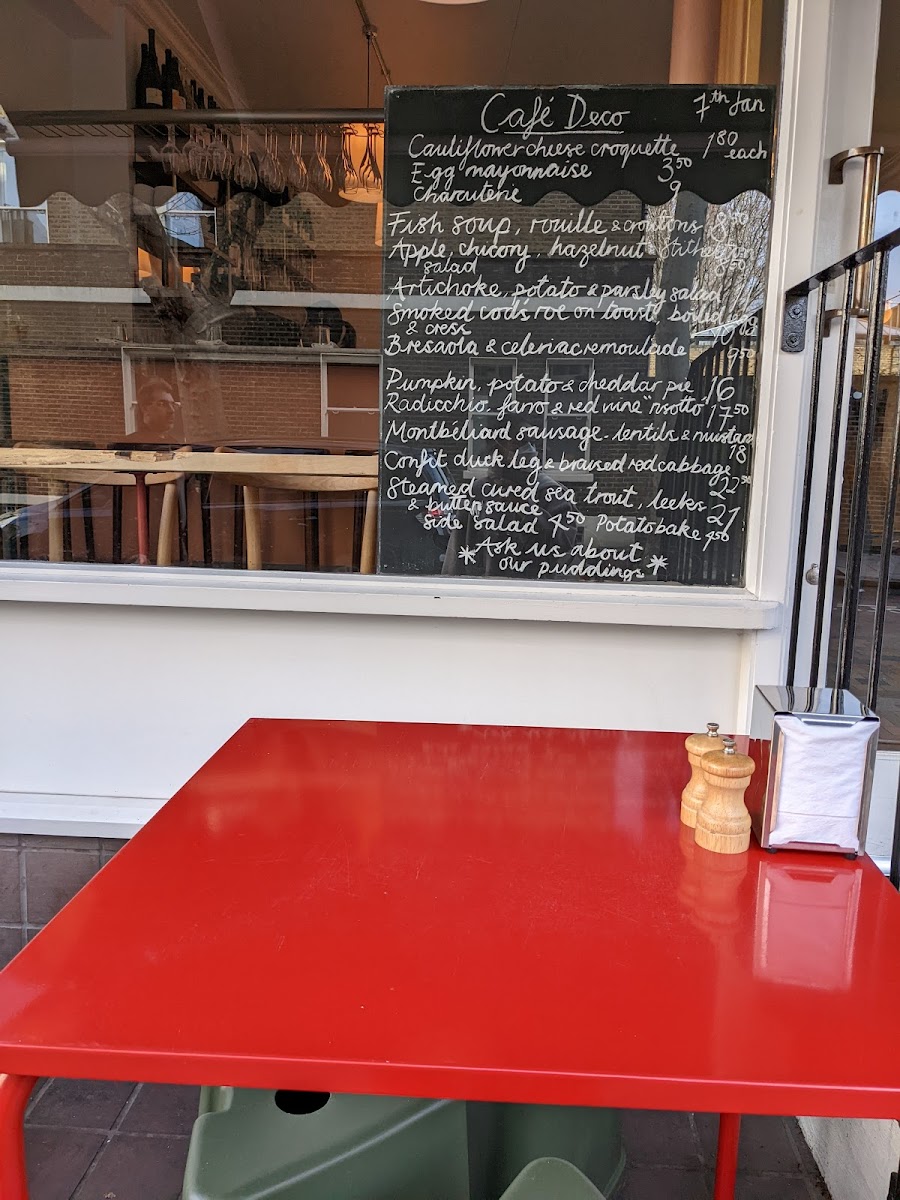 Café Deco 7th Jan
Cauliflower cheese croquette 1.80 each
Egg mayonnaise 3.50
Charcuterie 9
Fish soup, rouille & croutons 8.50
Apple, chicory, hazelnut &
salad 8.50
Artichoke, potato & parsley salad
Smoked cod's roe on toast, boiled egg
& cress
Bresaola & celeriac remoulade 9.50
Pumpkin, potato & cheddar pie 16
Radicchio, farro & red wine "risotto" 17.50
Montbéliard sausage, lentils & mustard
18
Confit duck leg & braised red cabbage
22.50
Steamed cured sea trout, leeks
& butter sauce 21
side salad 4.50 Potato bake 4.50
*Ask us about
our puddings*